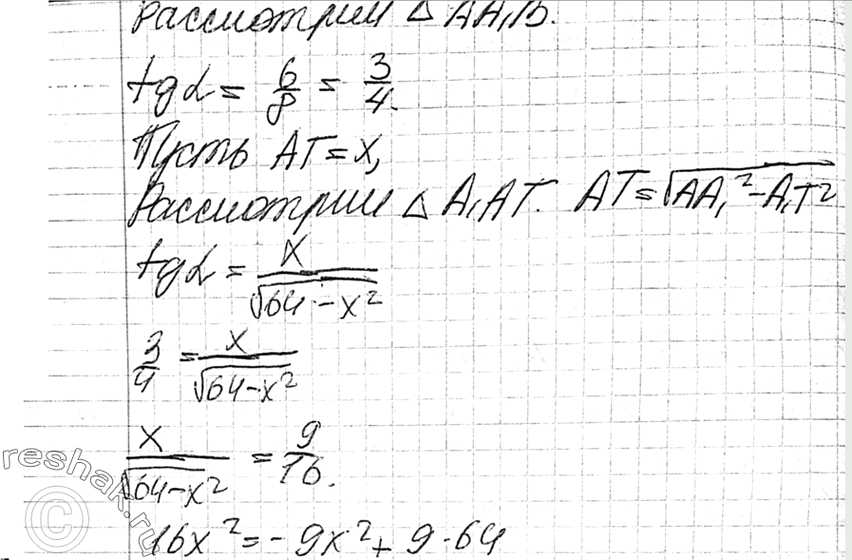 Рассмотрим △ AA₁B.
tgα = 6/8 = 3/4.
Пусть AT = x,
Рассмотрим △ A₁AT. AT = √(AA₁² - A₁T²)
tgα = x/√(64 - x²)
3/4 = x/√(64 - x²)
x/√(64 - x²) = 9/16.
16x² = - 9x² + 9·64
reshak.ru
©